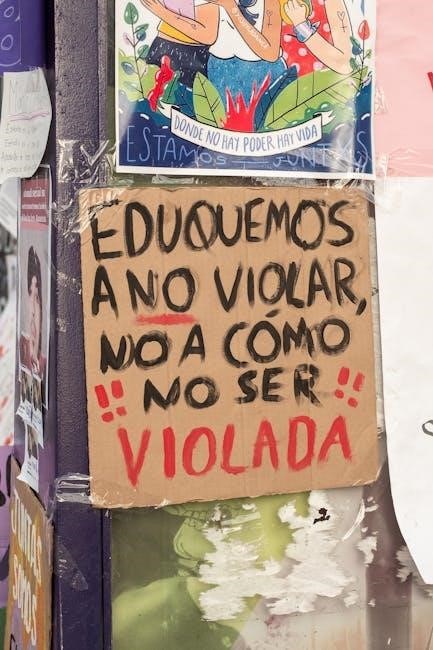 DONDE NO HAY PODER HAY VIDA
ESTAMOS JUNTAS
EDUQUEMOS
A NO VIOLAR,
NO A CÓMO
NO SER
"VIOLADA"